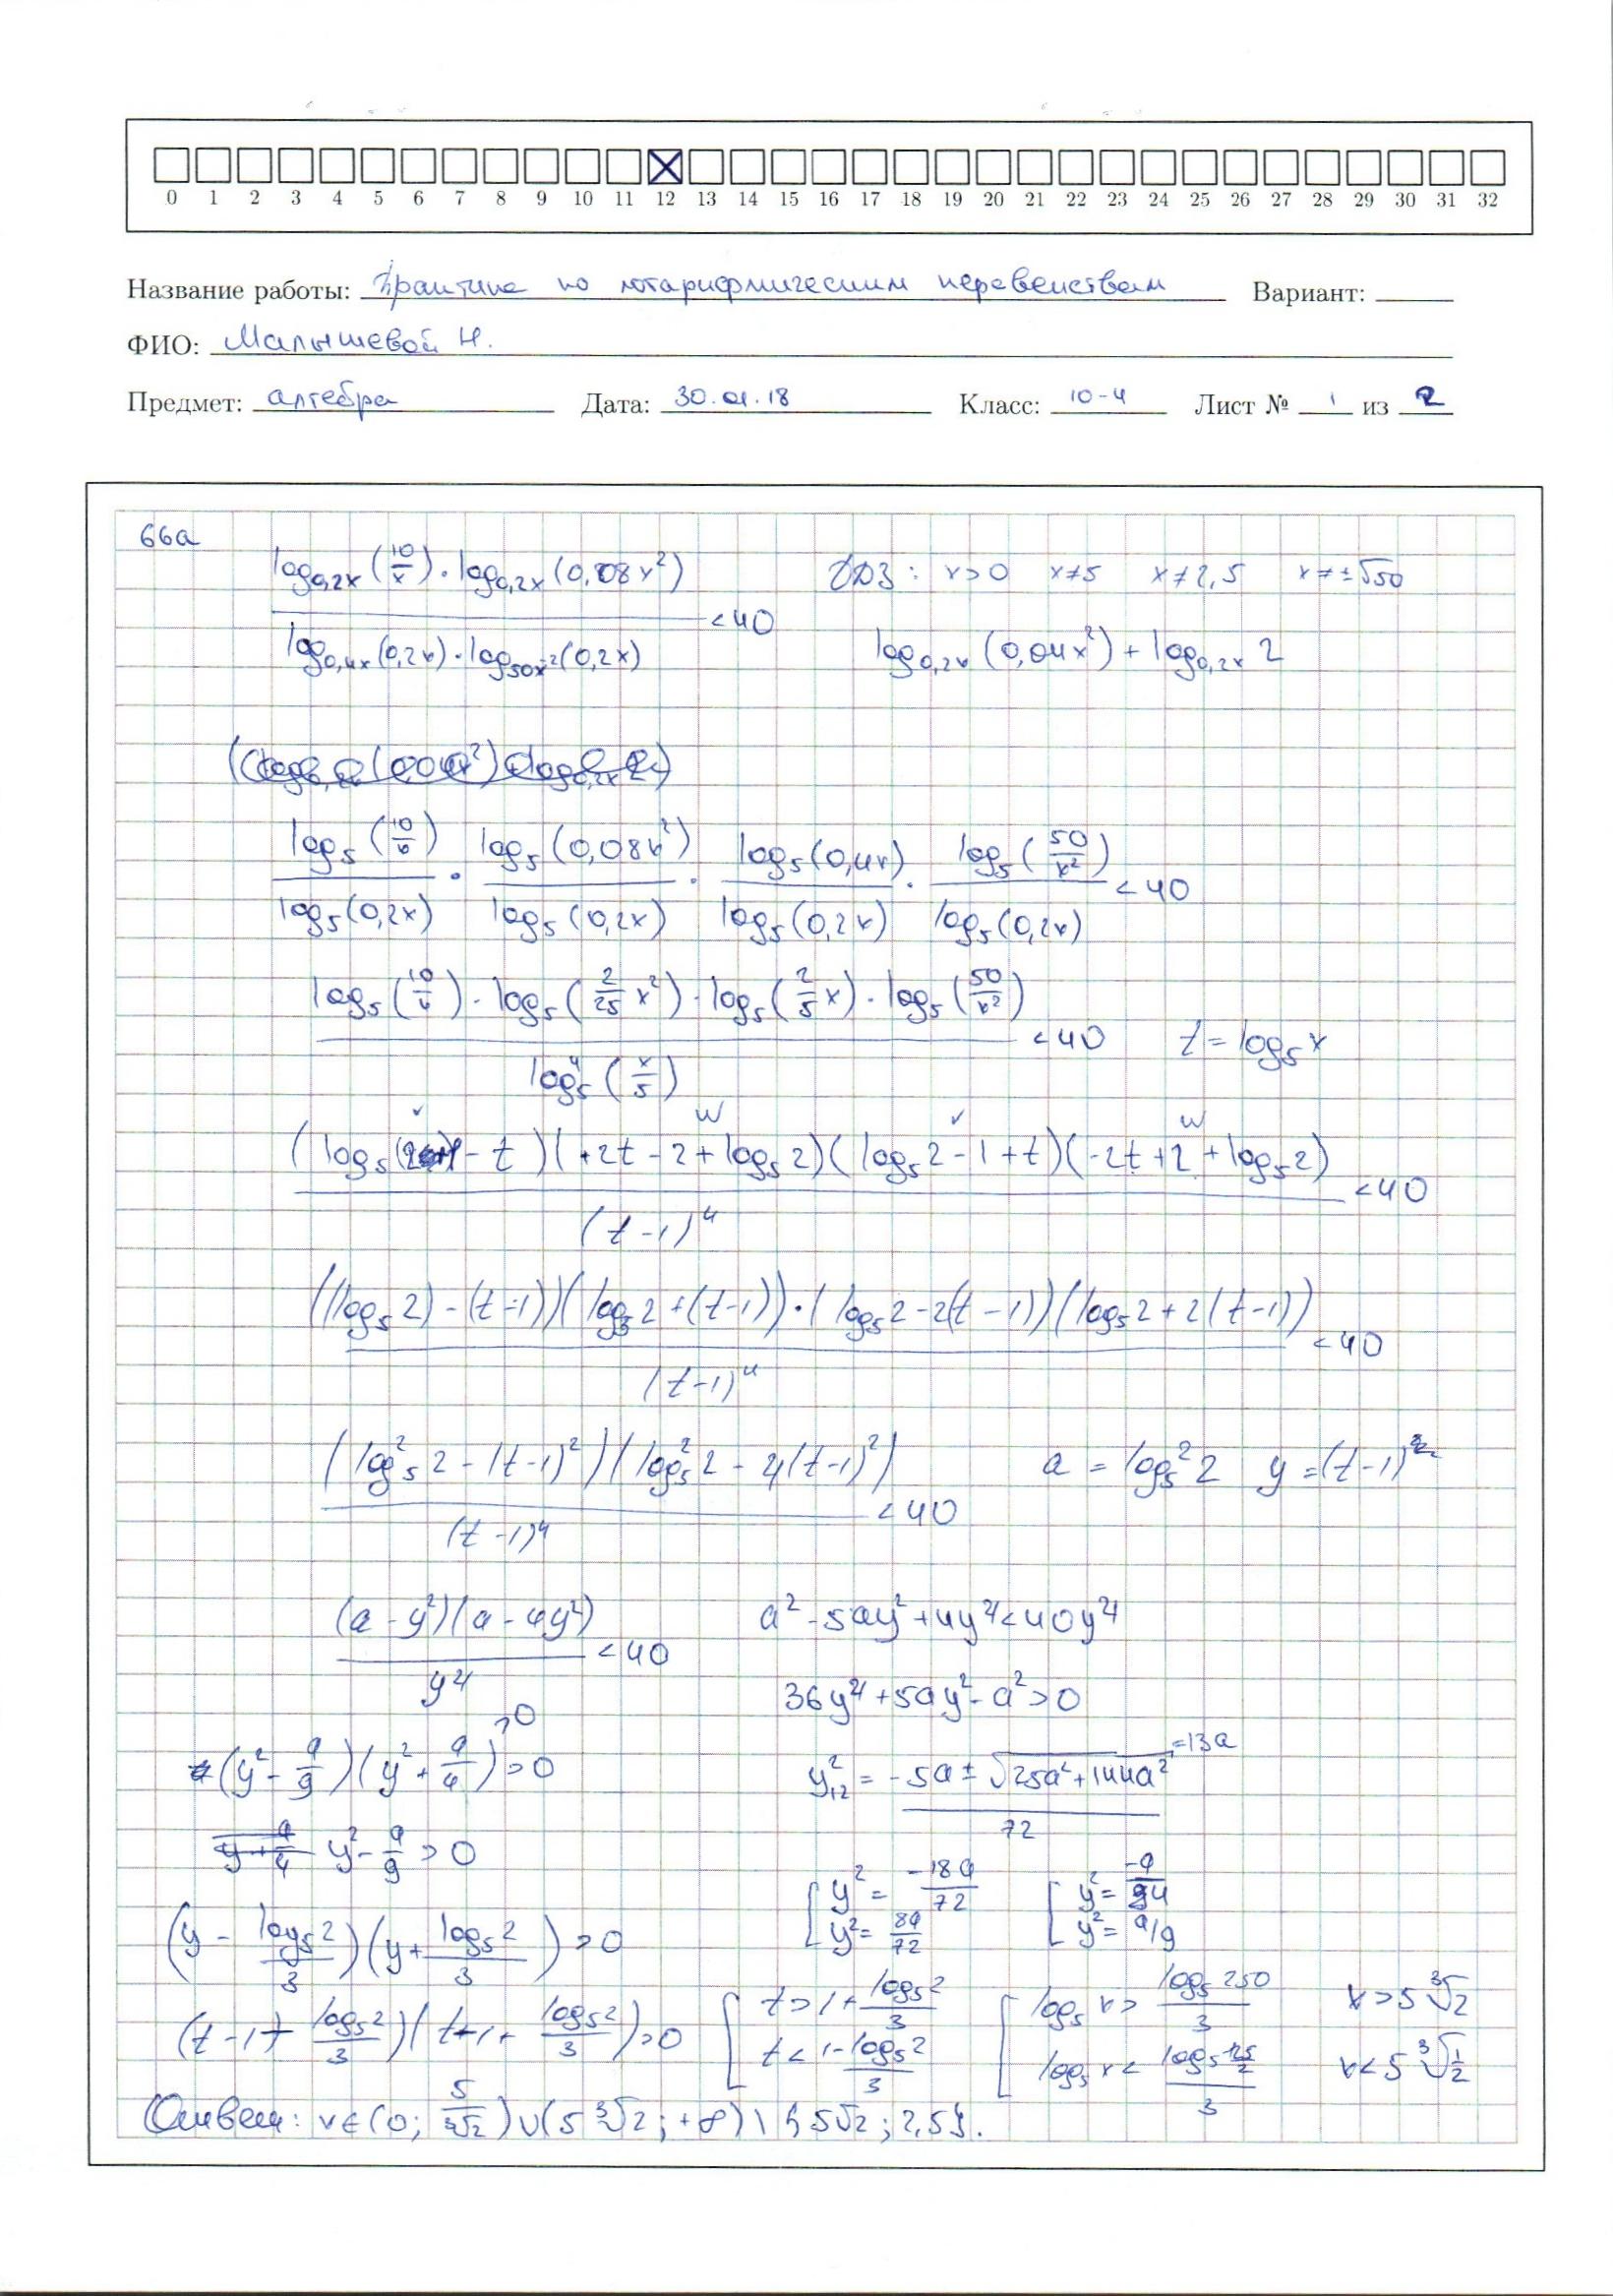 0 1 2 3 4 5 6 7 8 9 10 11 12 13 14 15 16 17 18 19 20 21 22 23 24 25 26 27 28 29 30 31 32
Название работы: Практика по логарифмическим неравенствам Вариант:
ФИО: Малышевой Н.
Предмет: алгебра Дата: 30.01.18 Класс: 10-4 Лист № 1 из 2
66а
(log_{0,2x}(10/x) · log_{0,2x}(0,08x²)) / (log_{0,4x}(0,2x) · log_{50x^{-2}}(0,2x)) < 40 ОДЗ: x>0 x≠5 x≠2,5 x≠±√50
log_{0,2x}(0,04x²) + log_{0,2x} 2
log₅(10/x) / log₅(0,2x) · log₅(0,08x²) / log₅(0,2x) · log₅(0,4x) / log₅(0,2x) · log₅(50/x²) / log₅(0,2x) < 40
(log₅(10/x) · log₅(2/25 x²) · log₅(2/5 x) · log₅(50/x²)) / log₅⁴(x/5) < 40 t = log₅x
(-t)(+2t-2+log₅2)(log₅2-1+t)(-2t+2+log₅2) / (t-1)⁴ < 40
((log₅2)-(t-1))(log₅2+(t-1))·(log₅2-2(t-1))(log₅2+2(t-1)) / (t-1)⁴ < 40
(log₅²2-(t-1)²)(log₅²2-4(t-1)²) / (t-1)⁴ < 40 a = log₅²2 y = (t-1)
(a-y²)(a-4y²) / y⁴ < 40 a²-5ay²+4y⁴<40y⁴
36y⁴+5ay²-a²>0
(y²-a/9)(y²+a/4)>0 >0 y²₁,₂ = (-5a±√(25a²+144a²)) / 72 =13a
y²-a/9>0
[y² = -18a/72 y² = 8a/72 [y² = -a/4 y² = a/9
(y - log₅2/3)(y + log₅2/3) > 0
(t-1-log₅2/3)(t-1+log₅2/3)>0 [t>1+log₅2/3 t<1-log₅2/3 [log₅x> log₅250/3 log₅x< log₅ 125/2 /3 x>5∛2 x<5∛(1/2)
Ответ: x∈(0; 5/∛2)∪(5∛2; +∞)\{5√2; 2,5}.